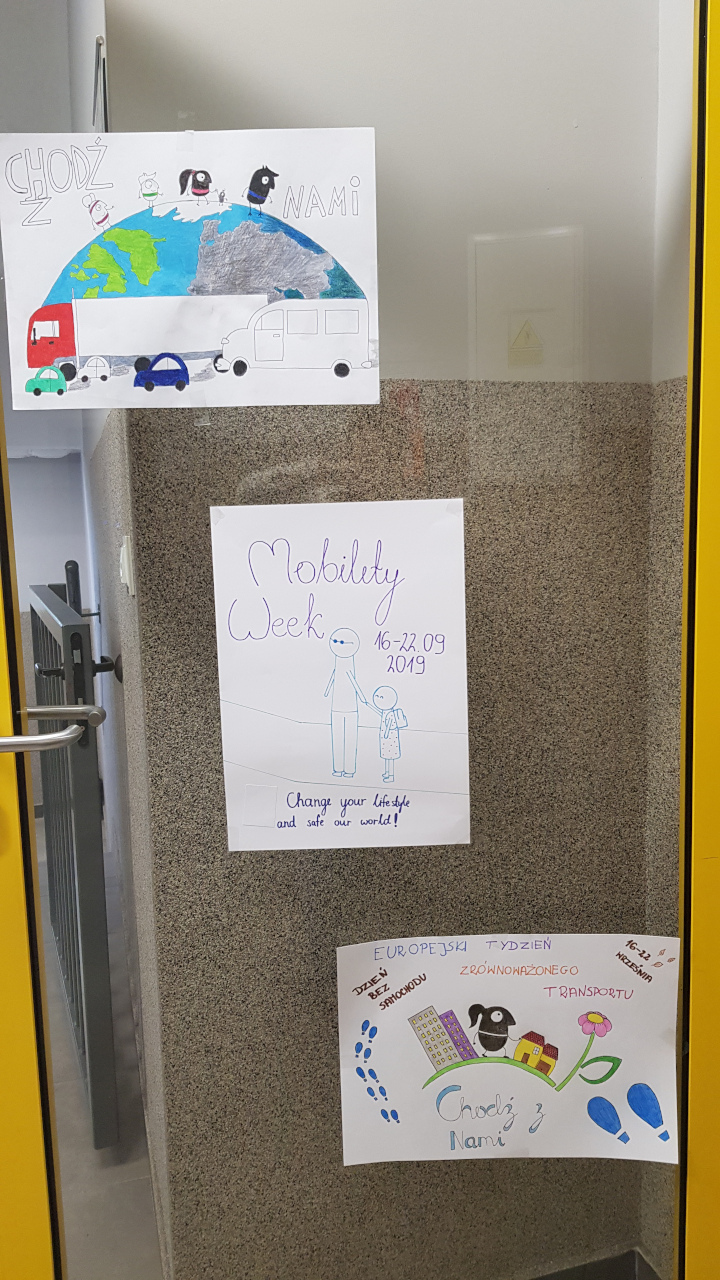 CHODŹ
Z NAMI
Mobility
Week
16-22.09
2019
Change your lifestyle
and safe our world!
EUROPEJSKI TYDZIEŃ
ZRÓWNOWAŻONEGO
TRANSPORTU
16-22
WRZEŚNIA
DZIEŃ
BEZ
SAMOCHODU
Chodź z
Nami